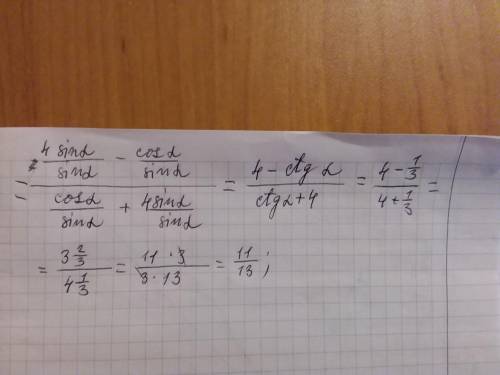 = (4 sinα/sinα − cosα/sinα)/(cosα/sinα + 4sinα/sinα) = (4 − ctg α)/(ctgα + 4) = (4 − 1/3)/(4 + 1/3) =
= (3 2/3)/(4 1/3) = (11 · 3)/(3 · 13) = 11/13 ;